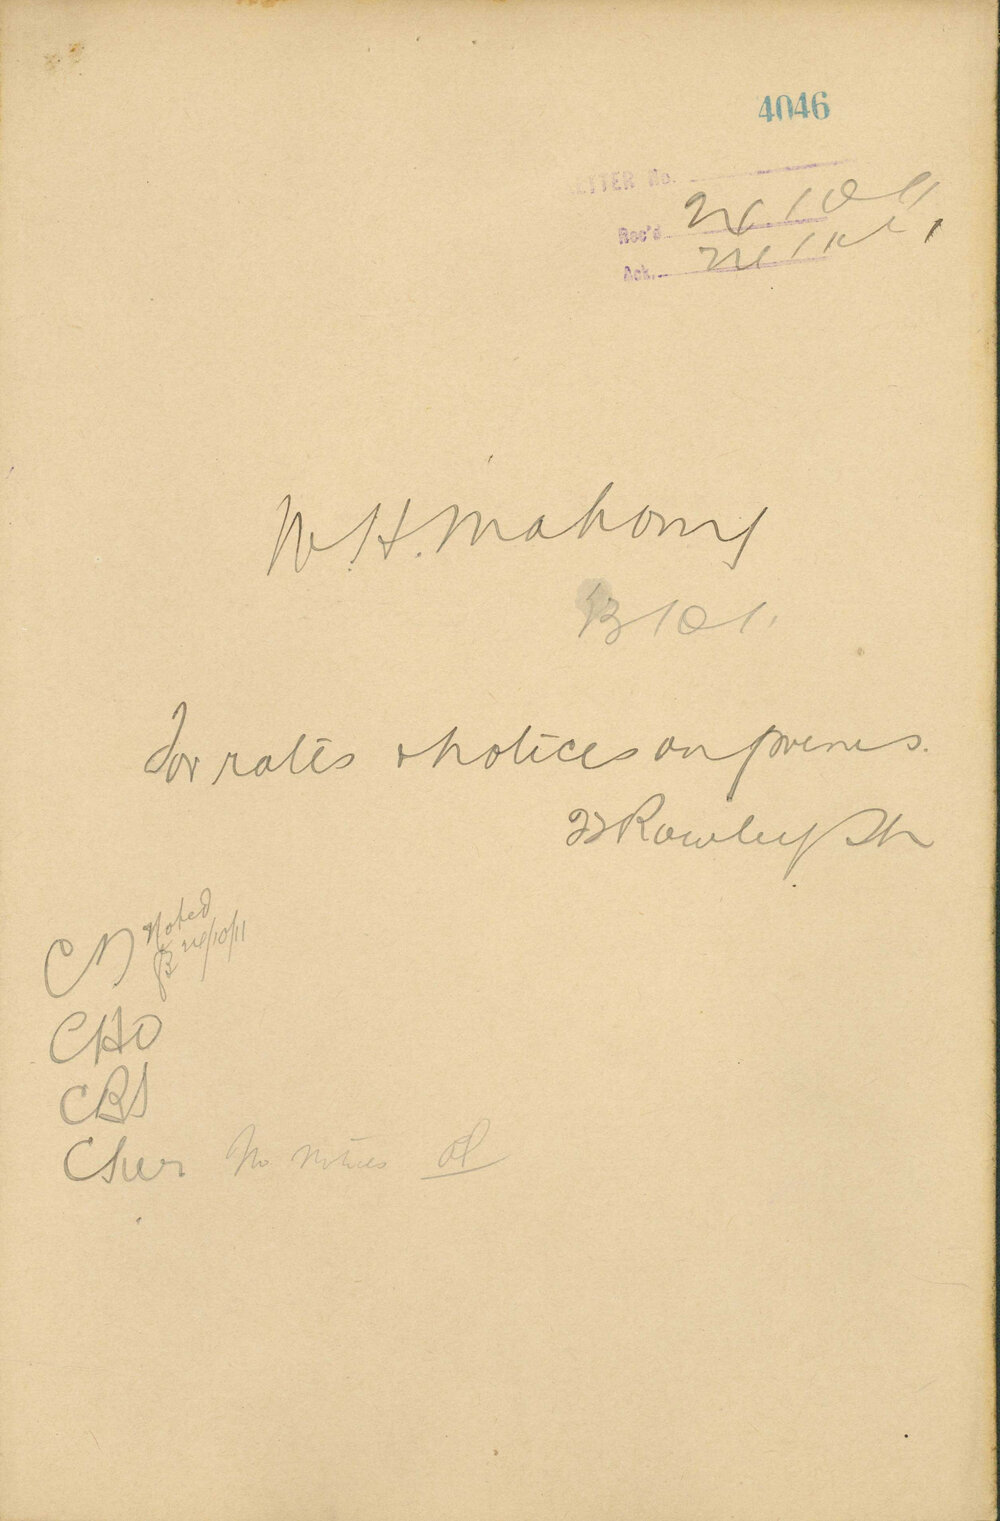 4046
LETTER No.
Rec'd 24/10/11
Ack. 24/10/11
W.H. Mahony
For rates & notices on prems.
Rowley St
Noted
24/10/11
CHO
CBS
No notices